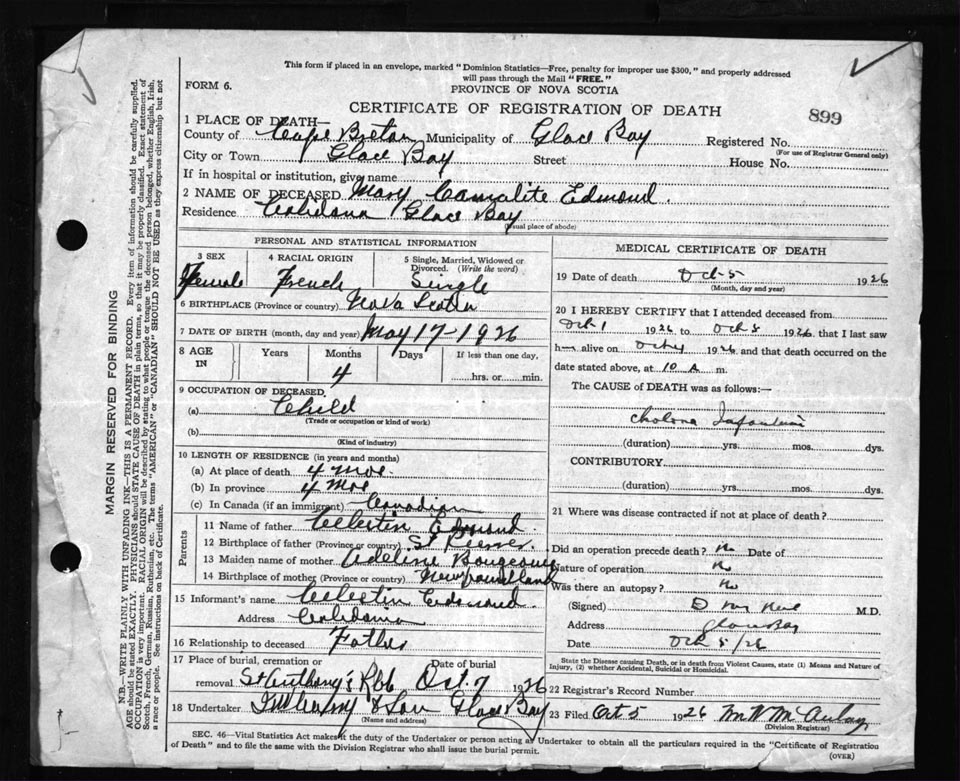 This form if placed in an envelope, marked "Dominion Statistics—Free, penalty for improper use $300," and properly addressed
will pass through the Mail "FREE."
FORM 6.
PROVINCE OF NOVA SCOTIA
CERTIFICATE OF REGISTRATION OF DEATH
899
1 PLACE OF DEATH—
County of Cape Breton Municipality of Glace Bay Registered No.
(For use of Registrar General only)
City or Town Glace Bay Street House No.
If in hospital or institution, give name
2 NAME OF DECEASED Mary Edmond.
Residence Glace Bay
(Usual place of abode)
PERSONAL AND STATISTICAL INFORMATION
3 SEX 4 RACIAL ORIGIN 5 Single, Married, Widowed or
Divorced. (Write the word)
Female French Single
6 BIRTHPLACE (Province or country) Nova Scotia
7 DATE OF BIRTH (month, day and year) May 17-1926
8 AGE IN Years Months Days If less than one day,
4 hrs. or min.
9 OCCUPATION OF DECEASED
(a) Child
(Trade or occupation or kind of work)
(b)
(Kind of industry)
10 LENGTH OF RESIDENCE (in years and months)
(a) At place of death 4 Mos.
(b) In province 4 Mos
(c) In Canada (if an immigrant) Canadian
Parents
11 Name of father Celestin Edmond.
12 Birthplace of father (Province or country) St Pierre.
13 Maiden name of mother Adeline
14 Birthplace of mother (Province or country) Newfoundland
15 Informant's name Celestin Edmond.
Address
16 Relationship to deceased Father
17 Place of burial, cremation or Date of burial
removal St Anthony's Oct. 7 1926
18 Undertaker & Son Glace Bay
(Name and address)
MEDICAL CERTIFICATE OF DEATH
19 Date of death Oct-5 1926
(Month, day and year)
20 I HEREBY CERTIFY that I attended deceased from
Oct 1 1926 to Oct 5 1926, that I last saw
h— alive on Oct 4 1926 and that death occurred on the
date stated above, at 10 A m.
The CAUSE of DEATH was as follows:—
Cholera Infantum
(duration) yrs. mos. dys.
CONTRIBUTORY
(duration) yrs. mos. dys.
21 Where was disease contracted if not at place of death?
Did an operation precede death? No Date of
Nature of operation No
Was there an autopsy? No
(Signed) M.D.
Address Glace Bay
Date Oct 5/26
State the Disease causing Death, or in death from Violent Causes, state (1) Means and Nature of
Injury, (2) whether Accidental, Suicidal or Homicidal.
22 Registrar's Record Number
23 Filed Oct 5 1926 McAulay
(Division Registrar)
SEC. 46—Vital Statistics Act makes it the duty of the Undertaker or person acting as Undertaker to obtain all the particulars required in the "Certificate of Registration
of Death" and to file the same with the Division Registrar who shall issue the burial permit.
(OVER)
MARGIN RESERVED FOR BINDING
N.B.—WRITE PLAINLY WITH UNFADING INK—THIS IS A PERMANENT RECORD. Every item of information should be carefully supplied.
AGE should be stated EXACTLY. PHYSICIANS should STATE CAUSE OF DEATH in plain terms, so that it may be properly classified. Exact statement of
OCCUPATION is very important. RACIAL ORIGIN will be described by stating to what people or tongue the deceased person belonged, whether English, Irish,
Scotch, French, German, Russian, Ruthenian, etc. The terms "AMERICAN" or "CANADIAN" SHOULD NOT BE USED as they express citizenship but not
a race or people. See instructions on back of Certificate.